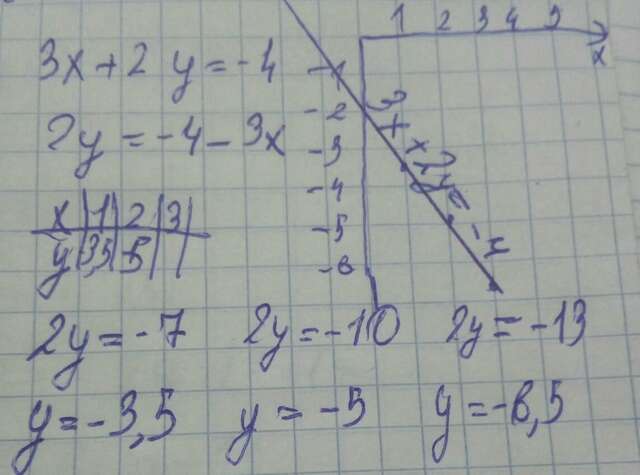 3x + 2y = -4
2y = -4 - 3x
x | 1 | 2 | 3 |
y | 3,5 | 5 | |
2y = -7 2y = -10 2y = -13
y = -3,5 y = -5 y = -6,5
1 2 3 4 5
x
-1
-2
-3
-4
-5
-6
3x + 2y = -4